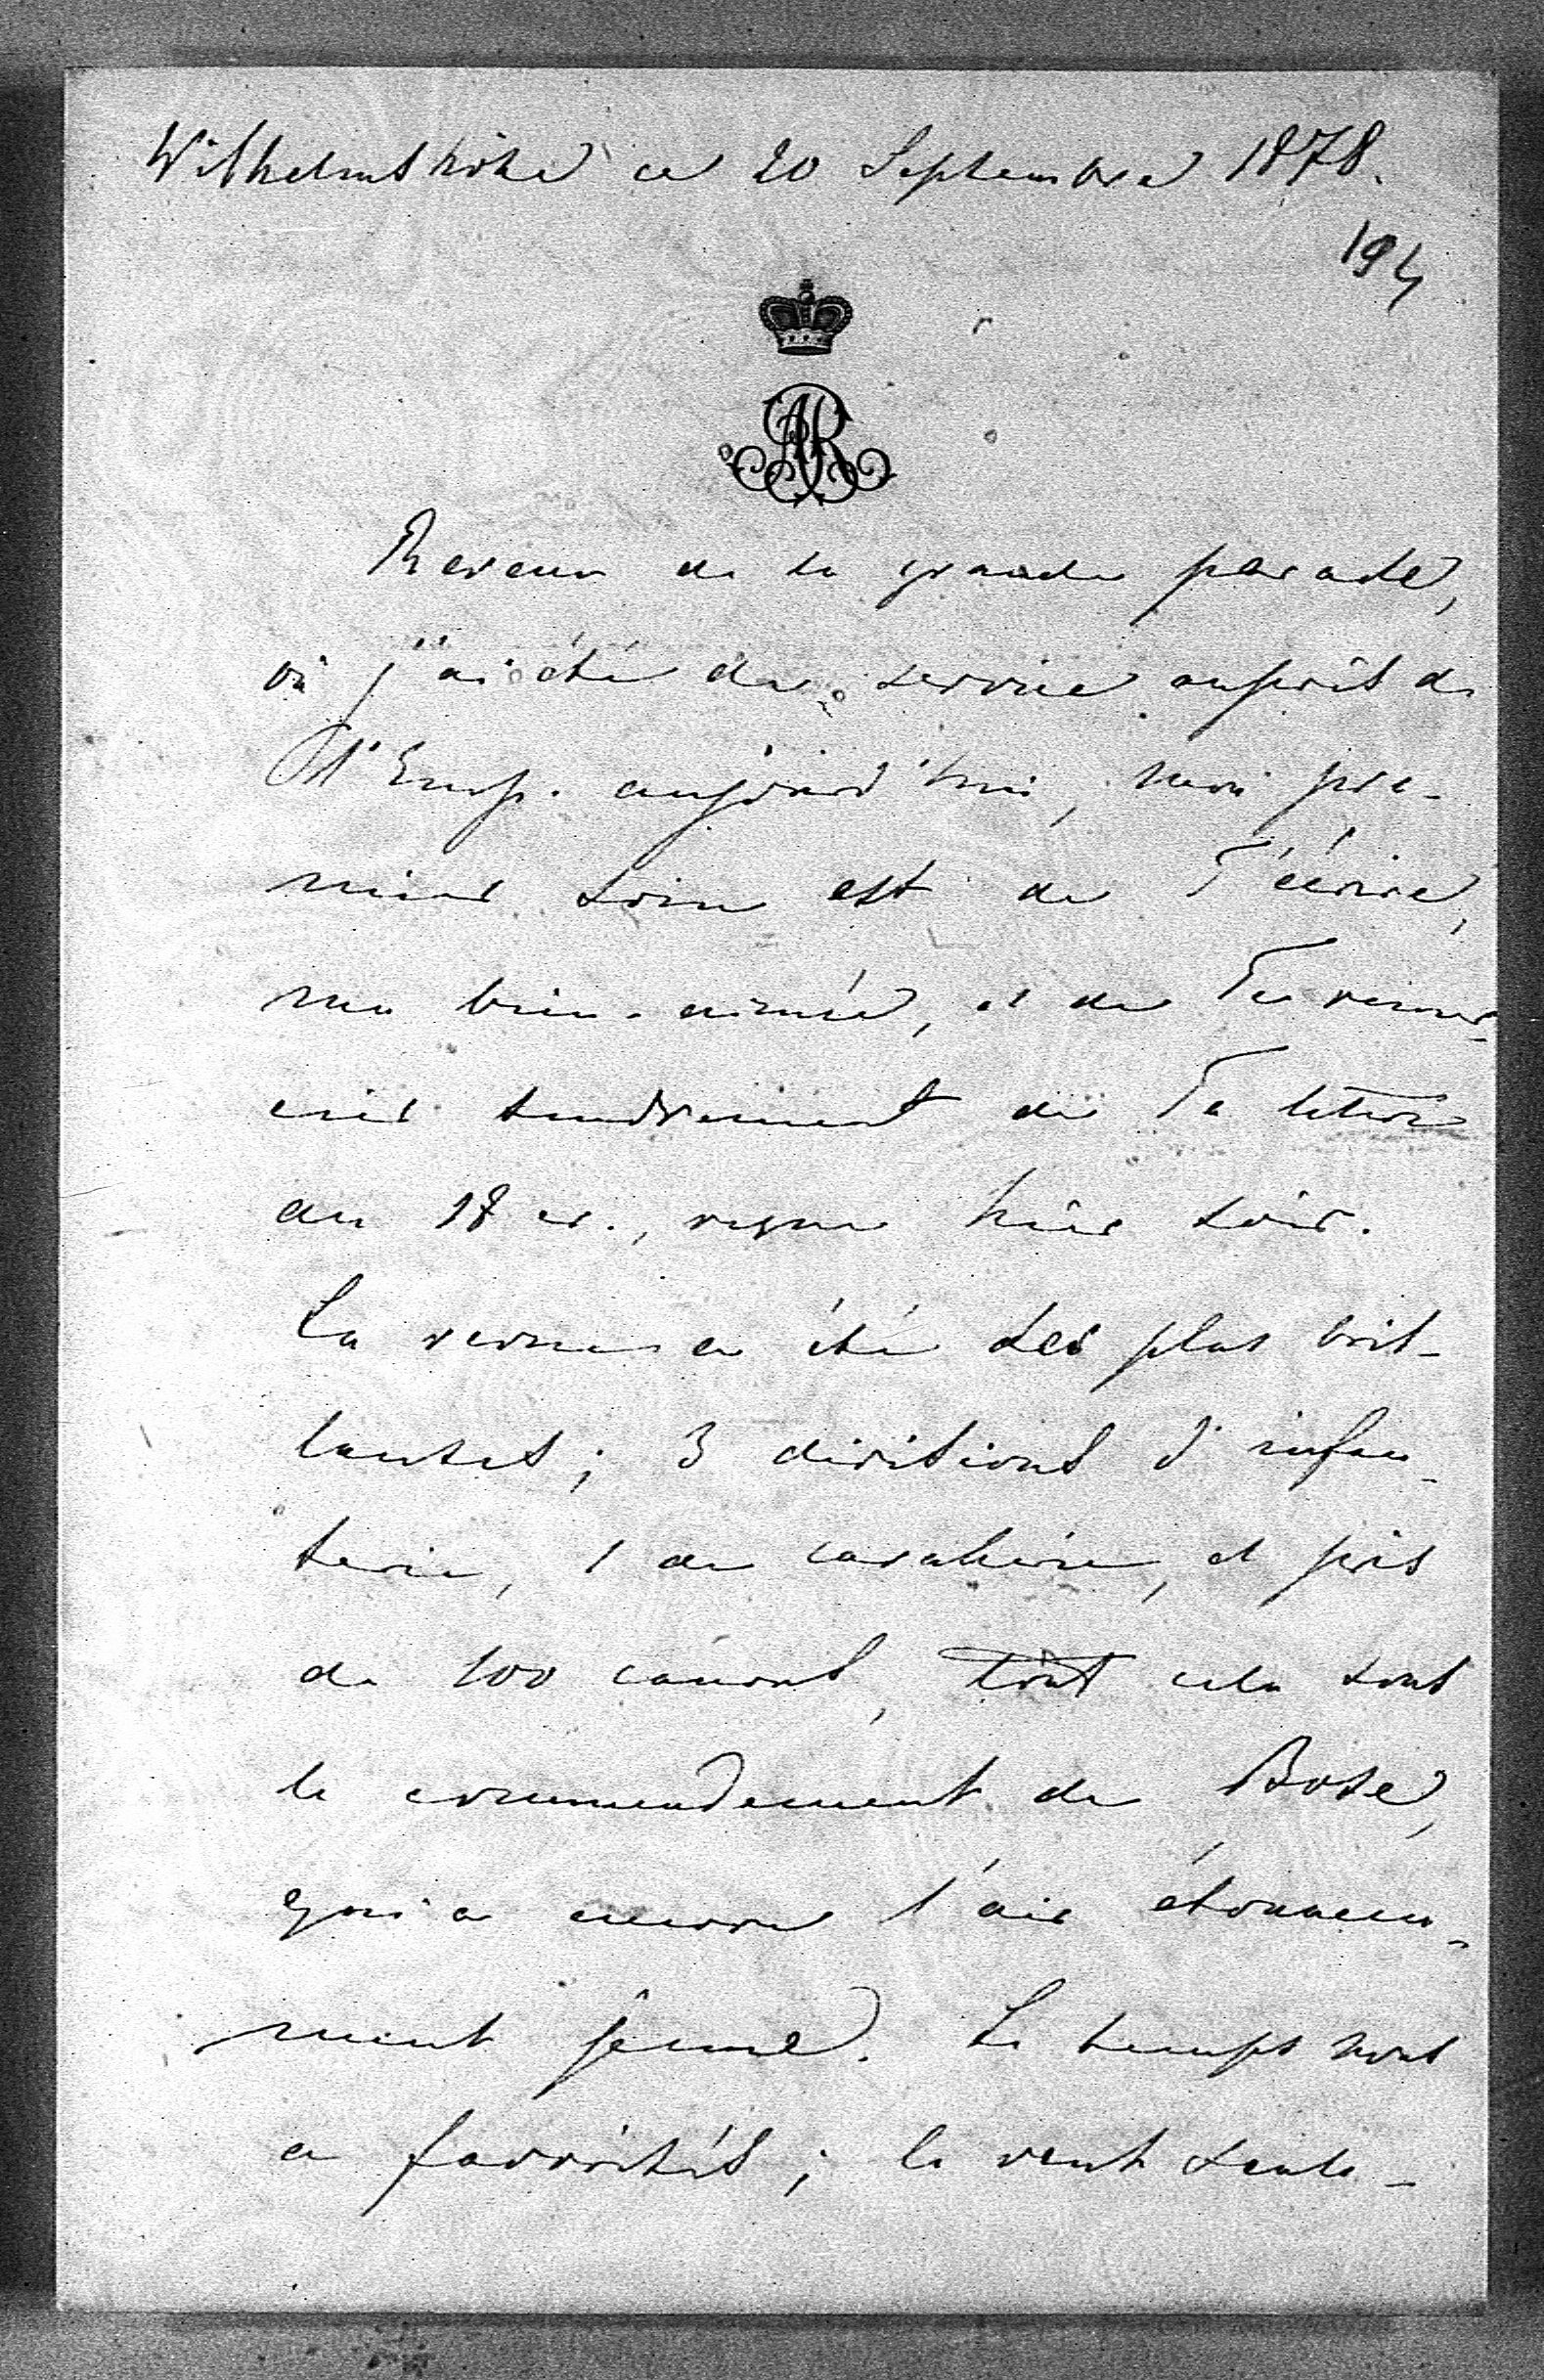 Wilhelmshöhe ce 20 Septembre 1878.
194
AR
Revenu de la grande parade,
où j'ai été de service auprès de
l'Emp. aujourd'hui, mon pre-
mier soin est de T'écrire,
ma bien-aimée, et de Te remer-
cier tendrement de Ta lettre
du 18 cr., reçue hier soir.
La revue a été des plus bril-
lantes; 3 divisions d'infan-
terie, 1 de cavalerie, et près
de 100 canons, tout cela sous
le commendement de Bose,
qui a encore l'air étonnem-
ment jeune. Le temps nous
a favorisés; le vent seule-